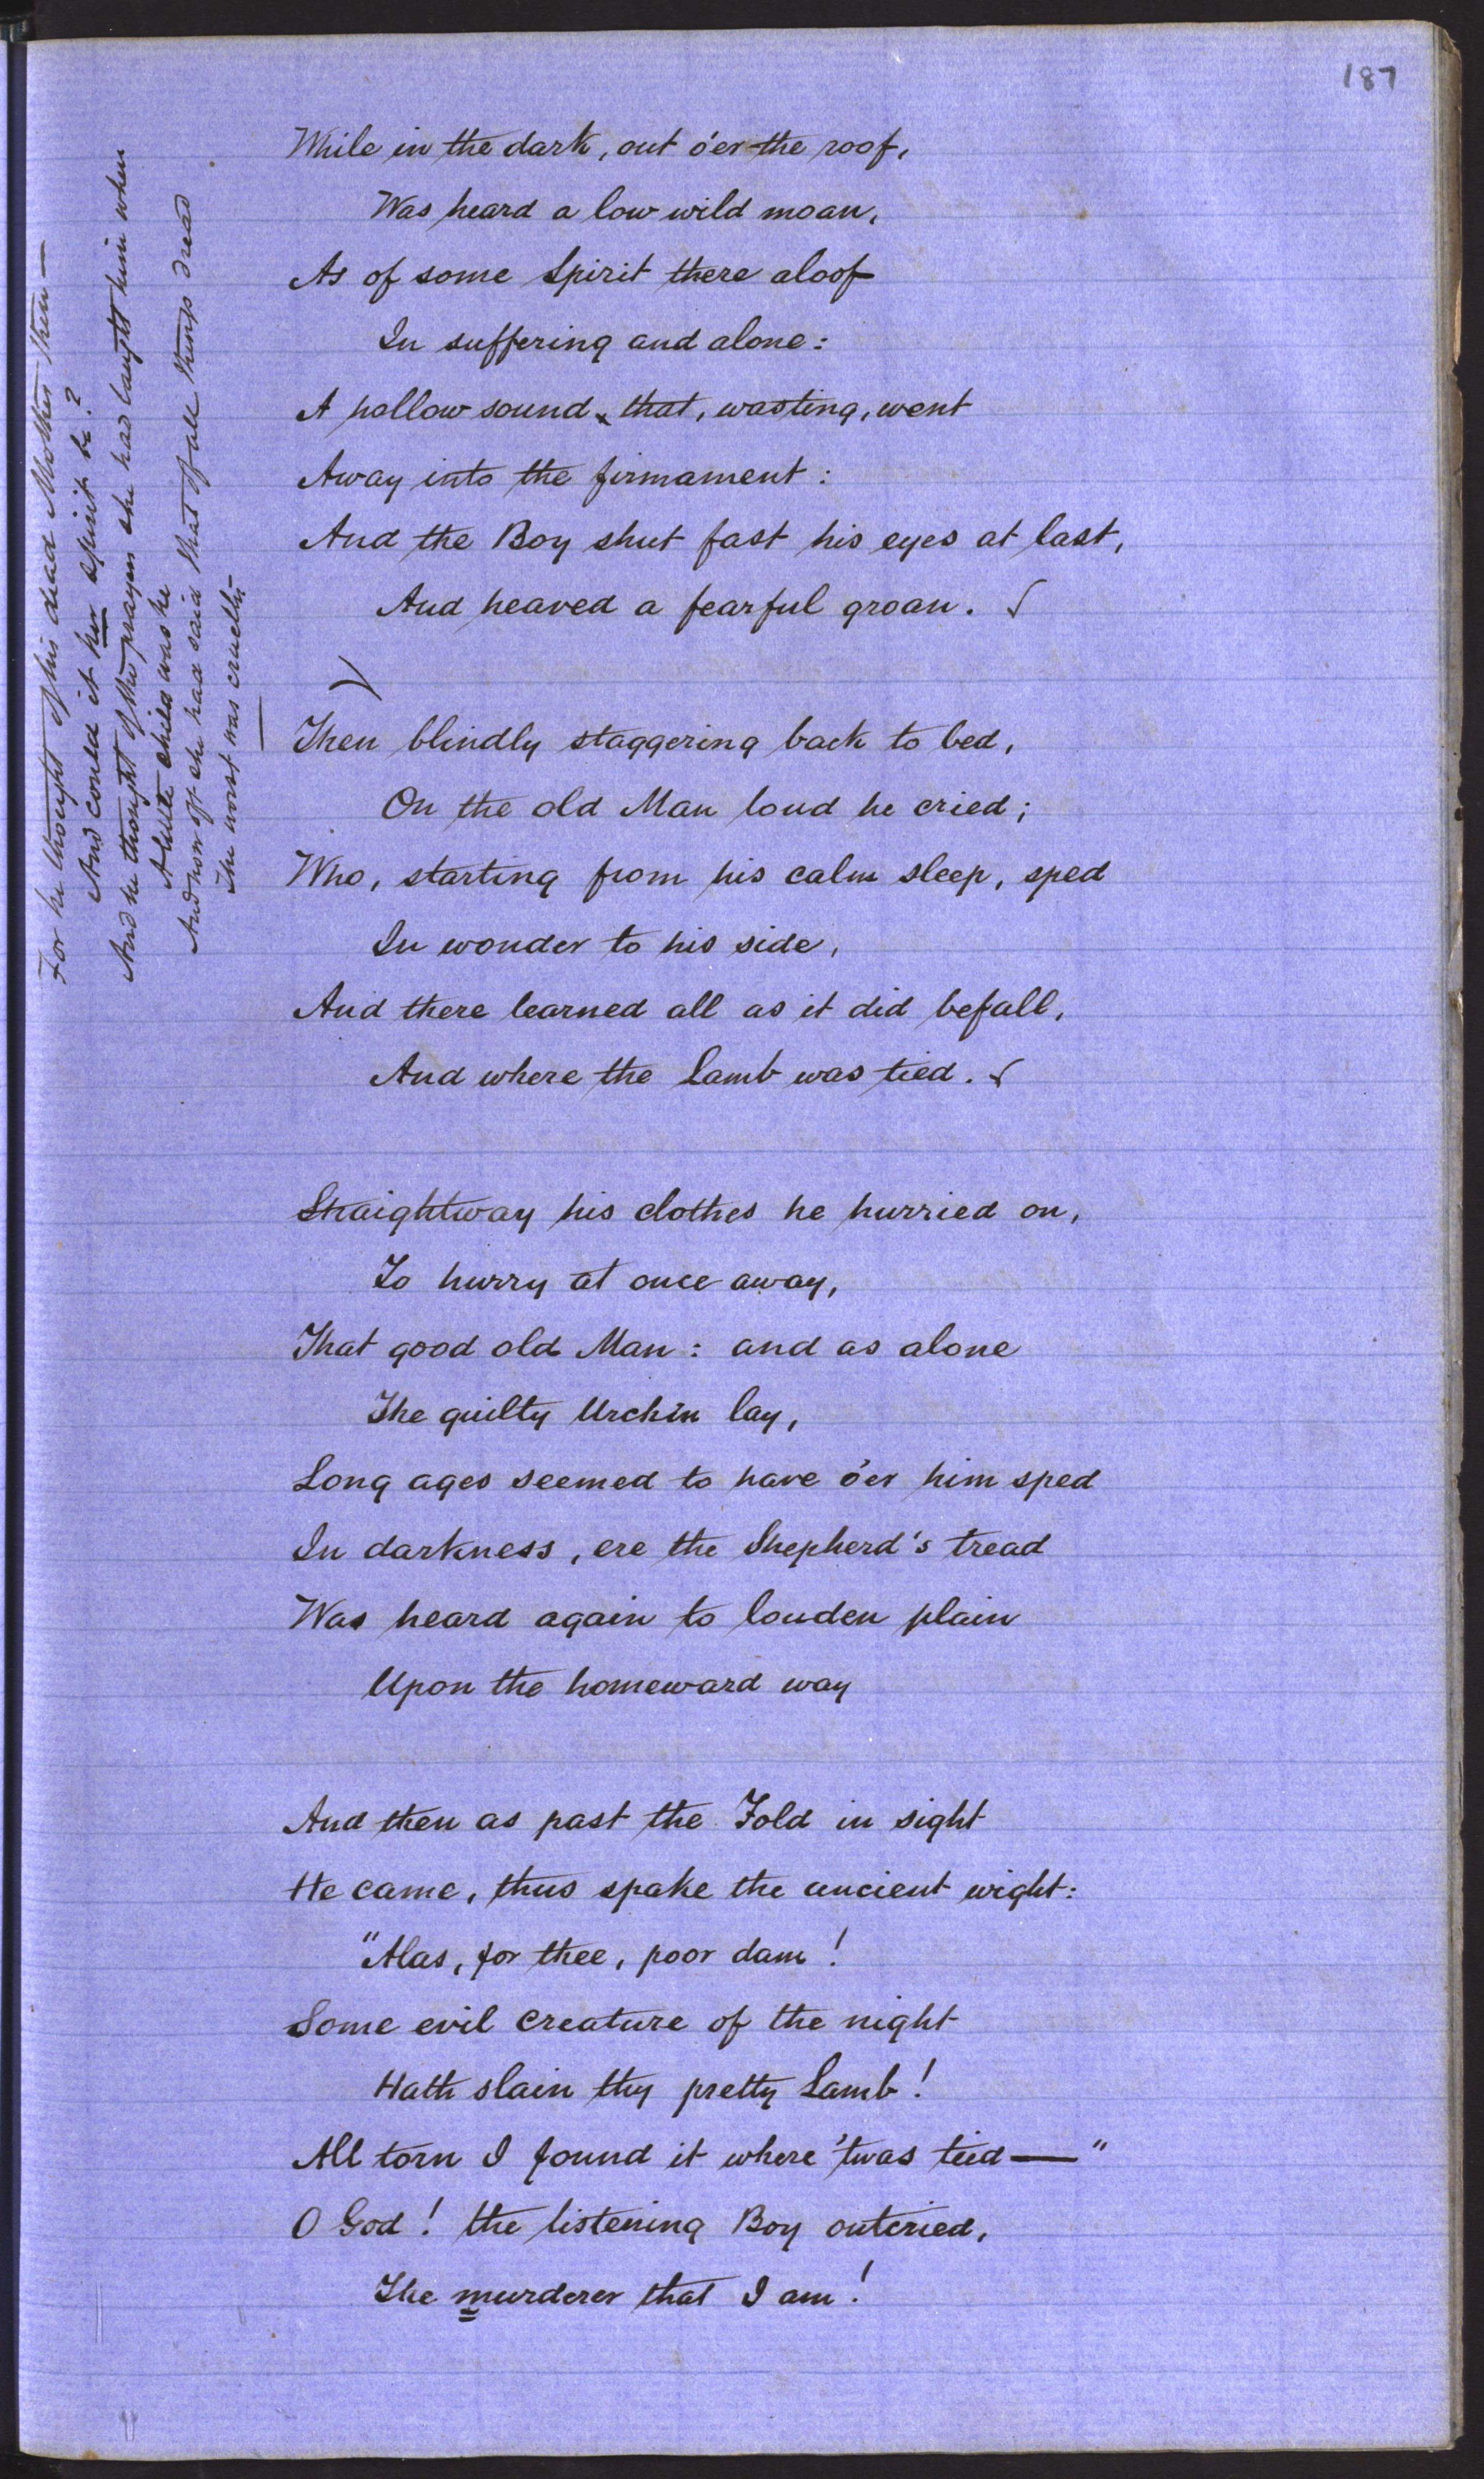 187
While in the dark, out o'er the roof,
Was heard a low wild moan,
As of some Spirit there aloof
In suffering and alone:
A hollow sound, that, wasting, went
Away into the firmament:
And the Boy shut fast his eyes at last,
And heaved a fearful groan.
For he thought of his dead Mother then —
And could it her spirit be?
And he thought of the prayers she had taught him when
A little child was he
And how oft she had said that of all things dread
The worst was cruelty —
Then blindly staggering back to bed,
On the old Man loud he cried;
Who, starting from his calm sleep, sped
In wonder to his side,
And there learned all as it did befall,
And where the Lamb was tied.
Straightway his clothes he hurried on,
To hurry at once away,
That good old Man: and as alone
The guilty Urchin lay,
Long ages seemed to have o'er him sped
In darkness, ere the Shepherd's tread
Was heard again to louden plain
Upon the homeward way
And then as past the Fold in sight
He came, thus spake the ancient wight:
"Alas, for thee, poor dam!
Some evil creature of the night
Hath slain thy pretty Lamb!
All torn I found it where 'twas tied—"
O God! the listening Boy outcried,
The murderer that I am!